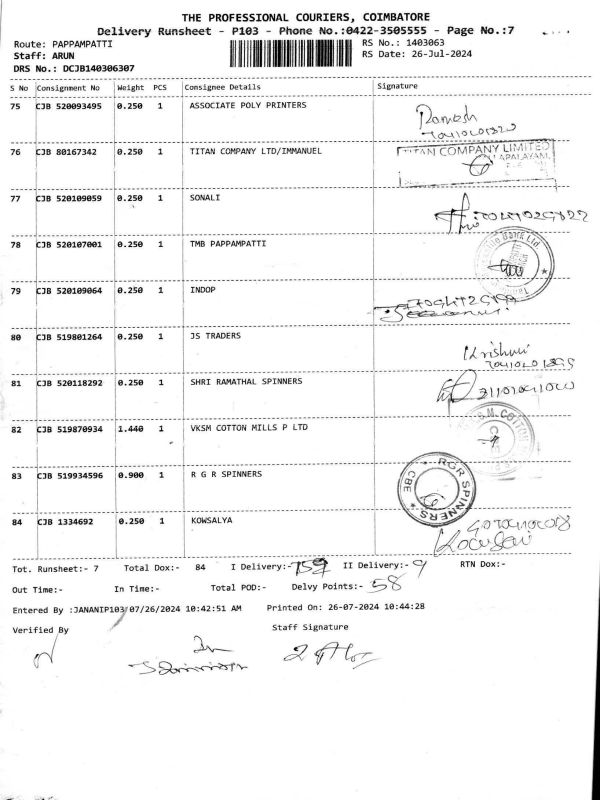 THE PROFESSIONAL COURIERS, COIMBATORE
Delivery Runsheet - P103 - Phone No.:0422-3505555 - Page No.:7
Route: PAPPAMPATTI RS No.: 1403063
Staff: ARUN RS Date: 26-Jul-2024
DRS No.: DCJB140306307
S No Consignment No Weight PCS Consignee Details Signature
75 CJB 520093495 0.250 1 ASSOCIATE POLY PRINTERS Ramesh
76 CJB 80167342 0.250 1 TITAN COMPANY LTD/IMMANUEL TITAN COMPANY LIMITED
77 CJB 520109059 0.250 1 SONALI
78 CJB 520107001 0.250 1 TMB PAPPAMPATTI Bank Ltd.
79 CJB 520109064 0.250 1 INDOP
80 CJB 519801264 0.250 1 JS TRADERS
81 CJB 520118292 0.250 1 SHRI RAMATHAL SPINNERS
82 CJB 519870934 1.440 1 VKSM COTTON MILLS P LTD COTTON
83 CJB 519934596 0.900 1 R G R SPINNERS RGR SPINNERS CBE
84 CJB 1334692 0.250 1 KOWSALYA
Tot. Runsheet:- 7 Total Dox:- 84 I Delivery:- II Delivery:- 9 RTN Dox:-
Out Time:- In Time:- Total POD:- Delvy Points:- 58
Entered By :JANANIP103/07/26/2024 10:42:51 AM Printed On: 26-07-2024 10:44:28
Verified By Staff Signature